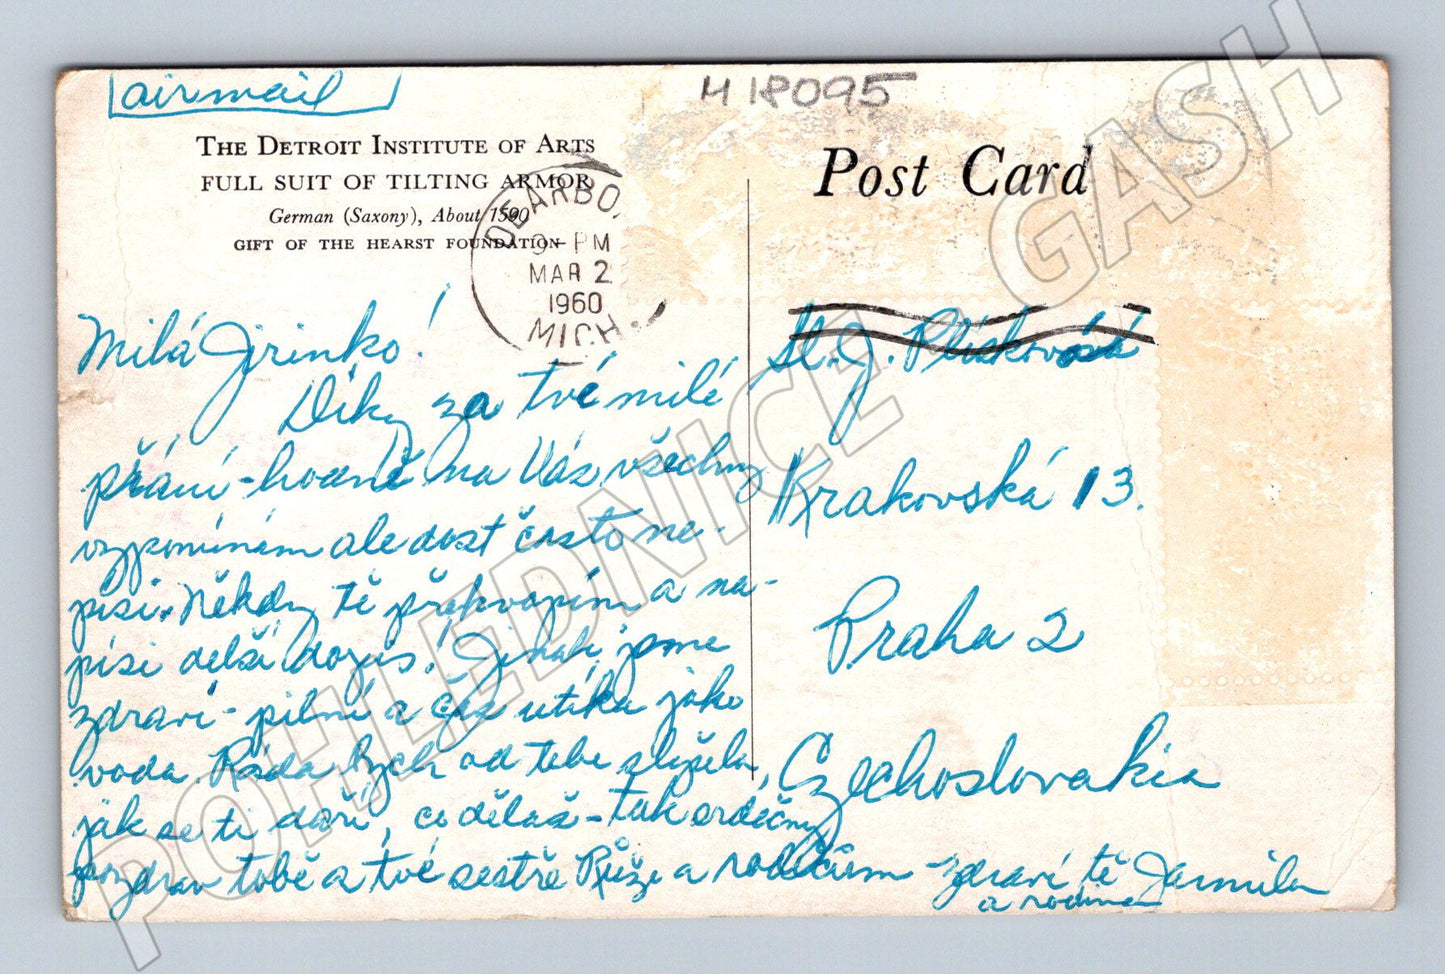 airmail
H 18095
THE DETROIT INSTITUTE OF ARTS
FULL SUIT OF TILTING ARMOR
German (Saxony), About 1590
GIFT OF THE HEARST FOUNDATION
Post Card
DEARBO
PM
MAR 2
1960
MICH.
Milá Jirinko!
Díky za tvé milé
přání - hodně na Vás všechny
vzpomínám ale dost často ne-
píši. Někdy tě překvapím a na-
píši delší dopis! Jinak jsme
zdraví - pilní a čas utíká jako
voda. Ráda bych od tebe slyšela,
jak se ti daří, co děláš - tak srdečný
pozdrav tobě a tvé sestře Růže a rodičům - zdraví tě Jarmila
a rodina
Sl. J. Plísková
Krakovská 13.
Praha 2
Czechoslovakia
POHLEDNICE GASH